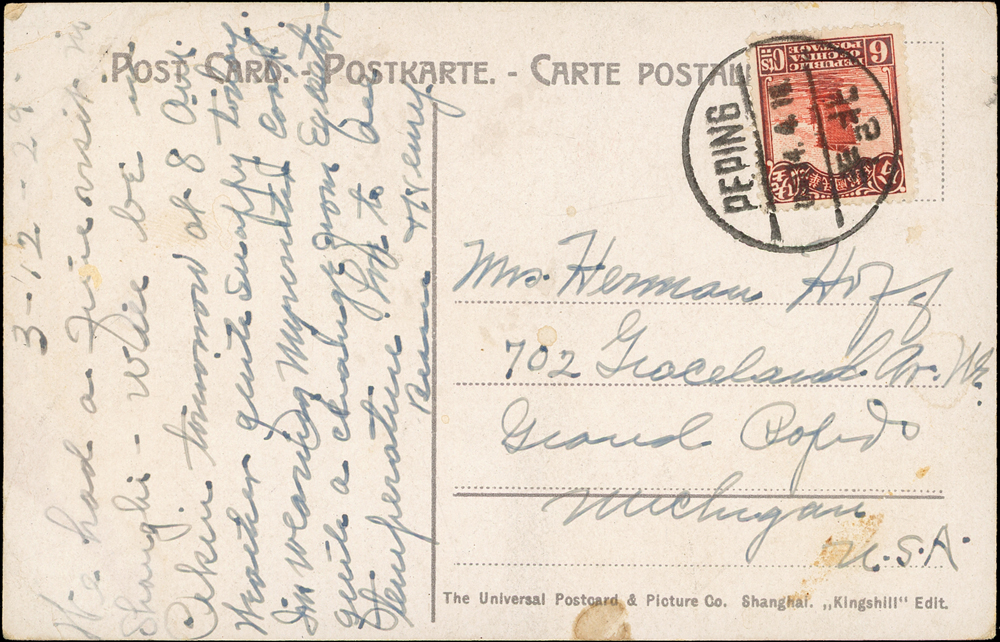 POST CARD. - POSTKARTE. - CARTE POSTAL
3-12-29.
We had a fine visit in
Shanghi - will be in
Pekin tomorrow at 8 A.M.
Weather quite snappy today.
Im wearing my winter coat.
quite a change from Equator
temperature. Hope to see
you
6
CTS
REPUBLIC
OF CHINA
POSTAGE
PEPING
Mrs. Herman
702 Graceland Av. N.E.
Grand Rapids
Michigan
U.S.A.
The Universal Postcard & Picture Co. Shanghai. „Kingshill“ Edit.